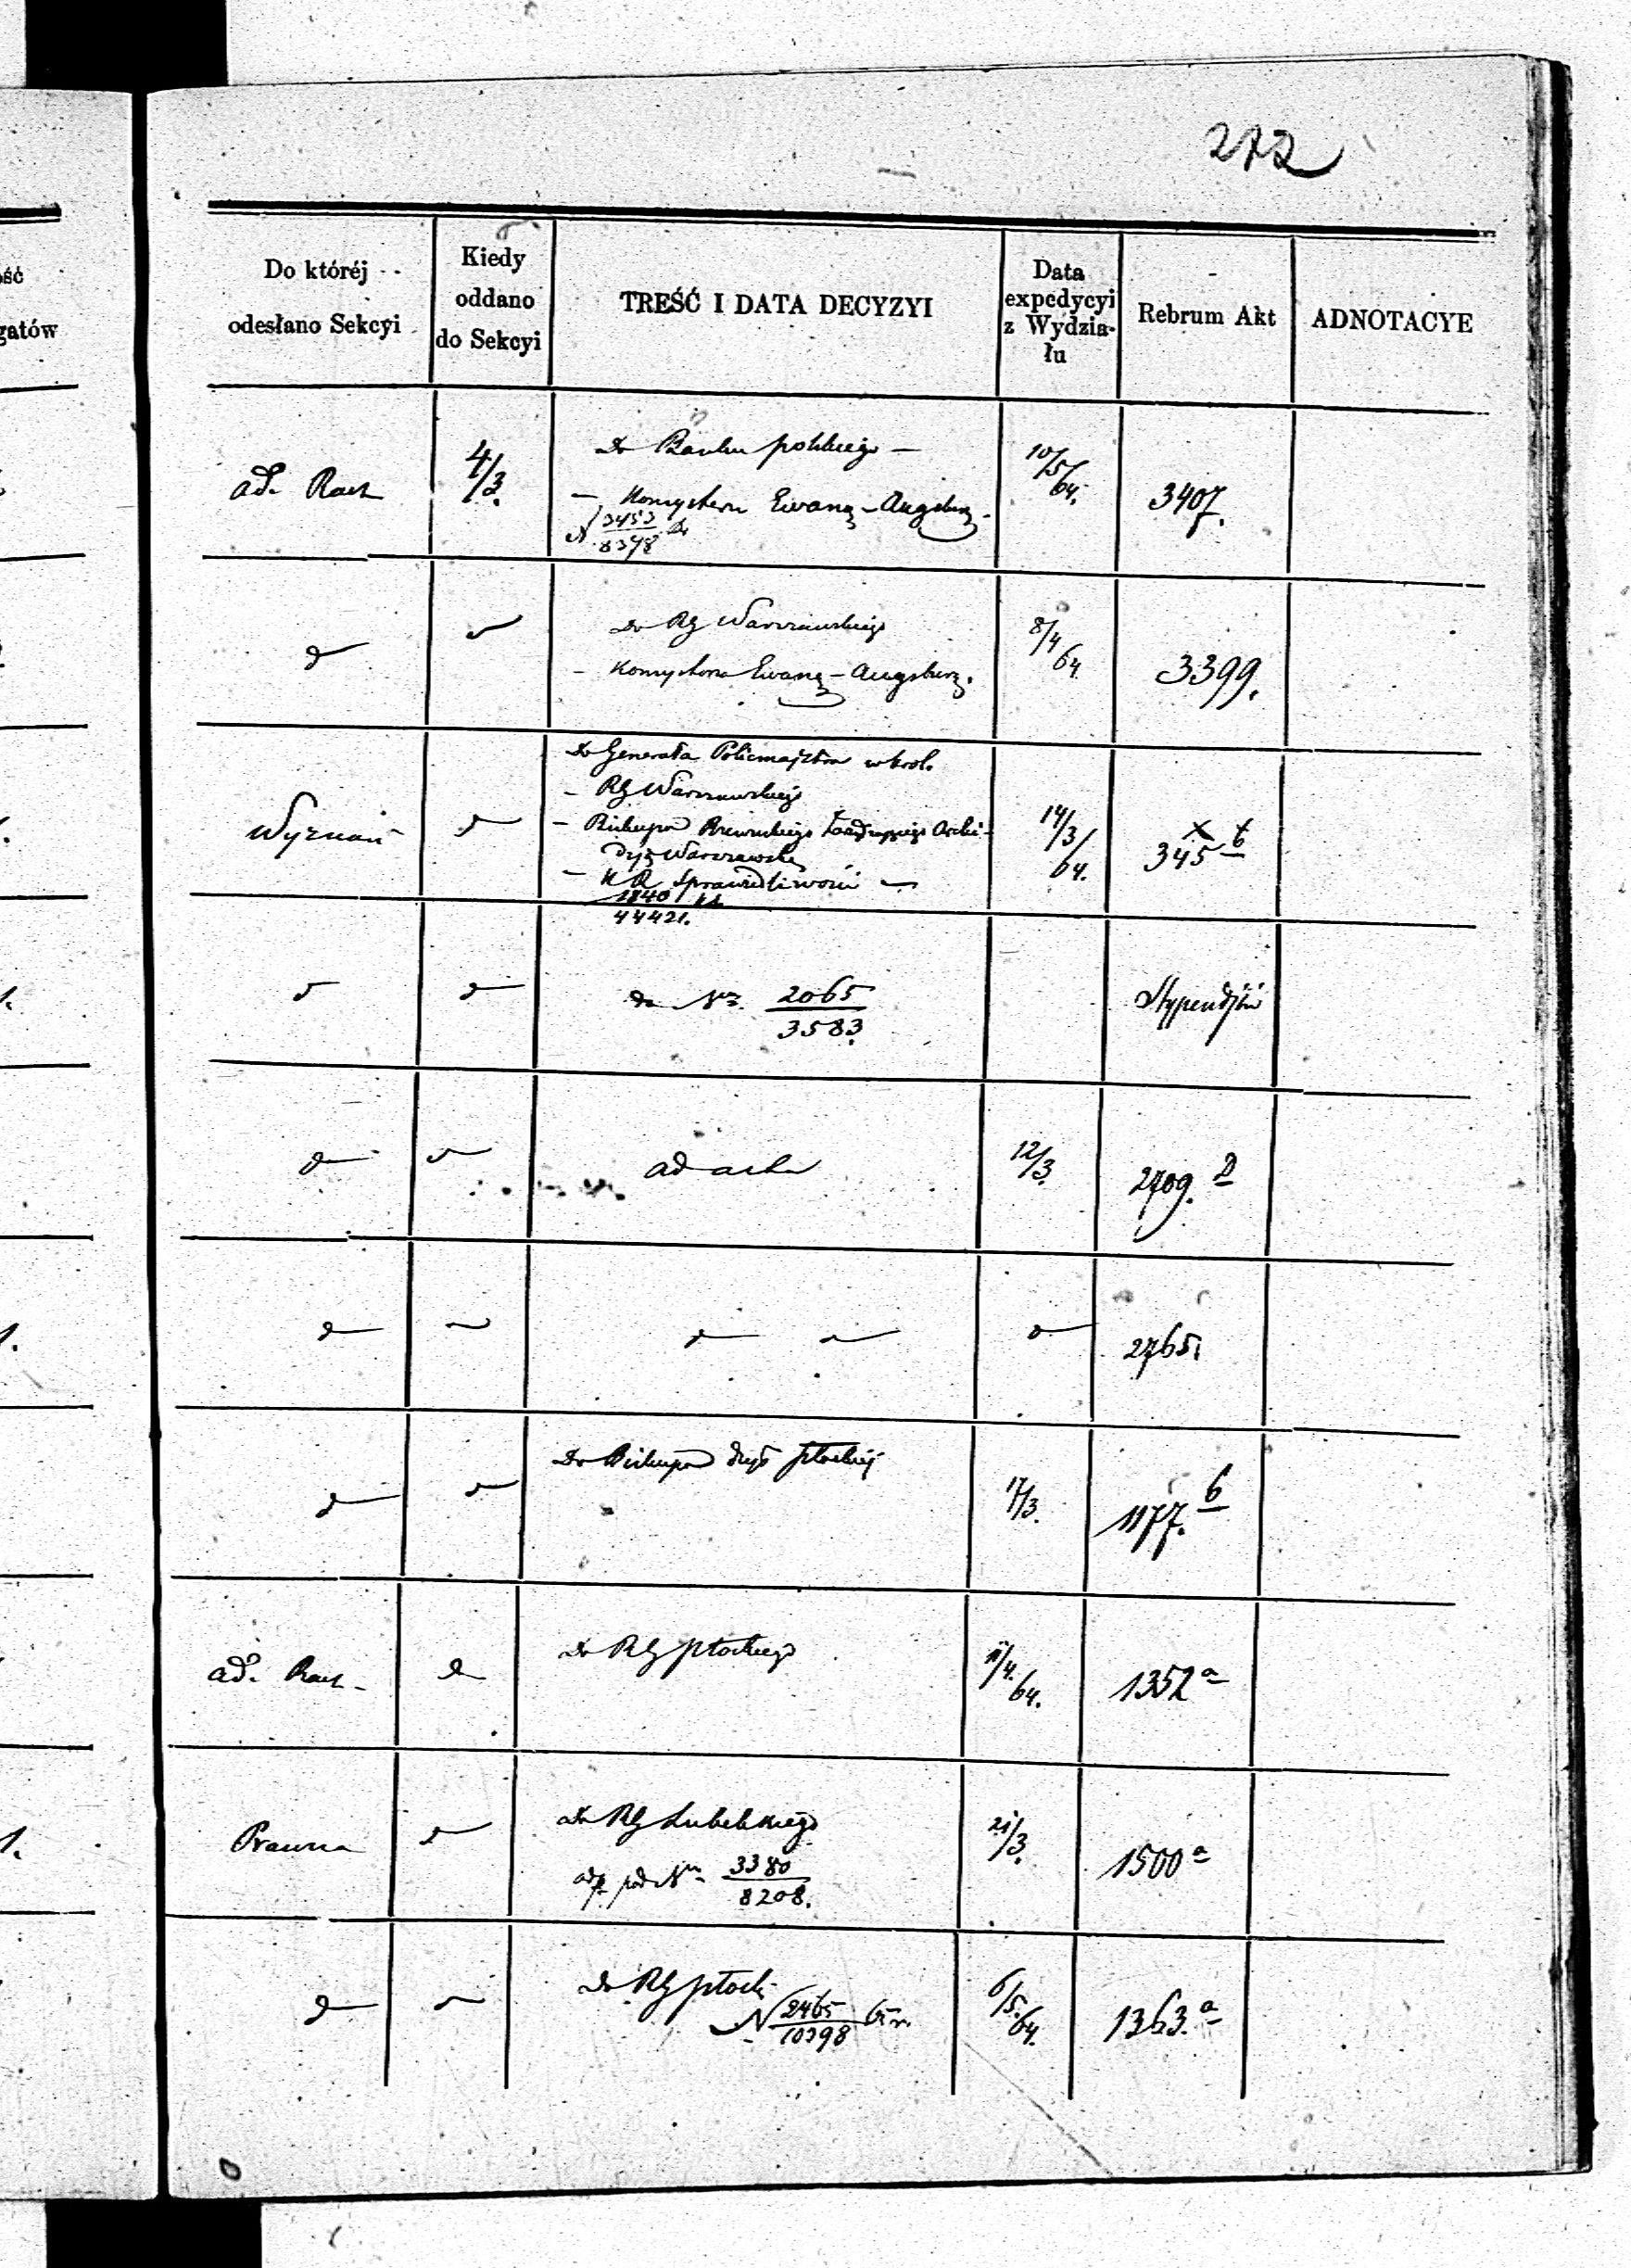 272
ość
gatów
Do któréj
odesłano Sekcyi
Kiedy
oddano
do Sekcyi
TREŚĆ I DATA DECYZYI
Data
expedycyi
z Wydzia-
łu
Rebrum Akt
ADNOTACYE
ad. Rach
4/3.
Do Banku polskiego —
— Konsystorza Ewang-Augsburg.
N 3453
8378
10/5/64.
3407.
Do RG Warszawskiego
— Konsystorza Ewang-Augsburg.
8/4 64
3399.
Wyznań
Do Generała Policmajstra w król.
— RG Warszawskiego
— Biskupa
Dyz Warszawskiej
— K R Sprawiedliwości —
1840
44421.
14/3/64.
345 b
do Nr. 2065
3583.
Stypendjów
ad acta
12/3.
2709.
2765.
Do Biskupa dyec płockiej
17/3.
1177. b
ad. Rach.
Do RG płockiego
11/4. 64.
1352 a
Prawna
Do RG Lubelskiego
odp. pod Nm 3380
8208.
21/3.
1500 a
Do RG płock.
N 2465
10398
6/5. 64.
1363. a